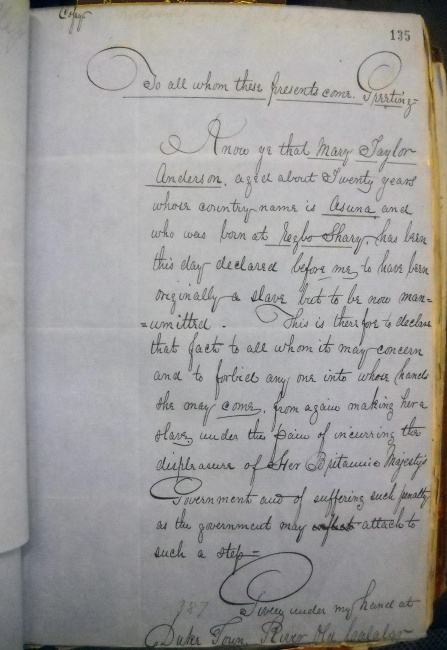 Copy
135
To all whom these presents come. Greeting-
Know ye that Mary Taylor
Anderson, aged about Twenty years
whose country name is Asuna and
who was born at Egbo Shary, has been
this day declared before me, to have been
originally a slave but to be now man=
=umitted. This is therefore to declare
that fact to all whom it may concern
and to forbid any one into whose hands
she may come, from again making her a
slave, under the pain of incurring the
displeasure of Her Britannic Majesty's
Government and of suffering such penalty
as the government may attach to
such a step=
Given under my hand at
Duke Town, River Old Calabar